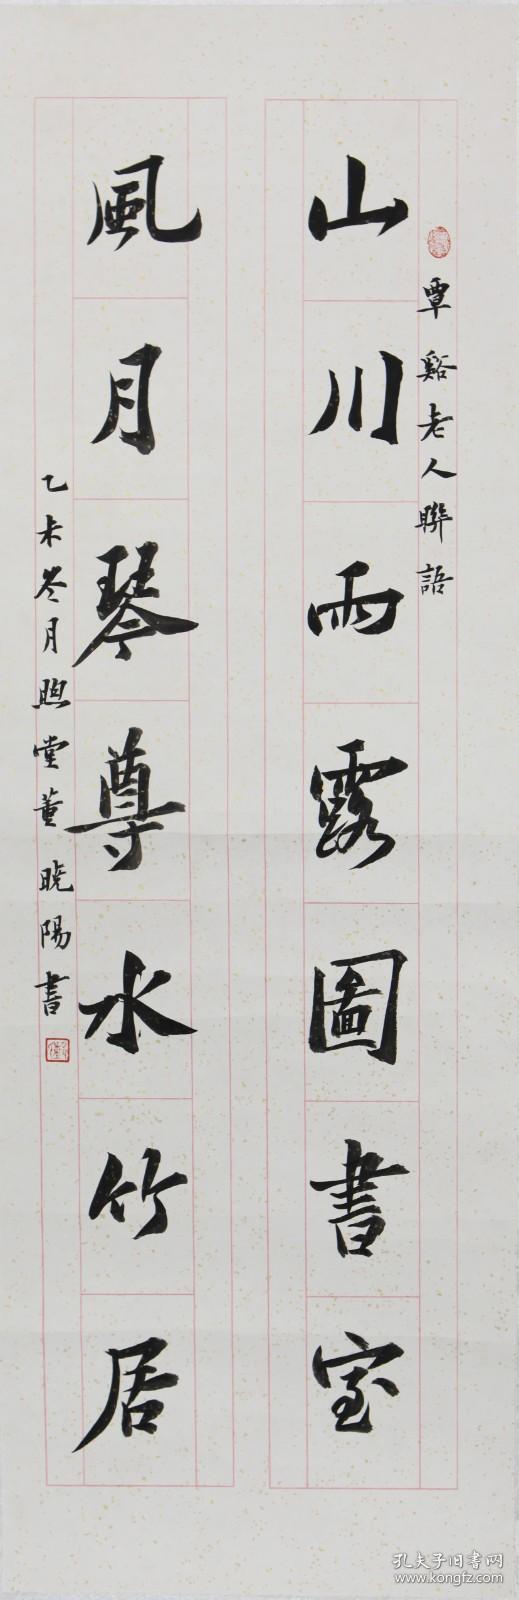 覃谿老人聯語
山川雨露圖書室
風月琴尊水竹居
乙未冬月煦堂董曉陽書
孔夫子旧书网
www.kongfz.com